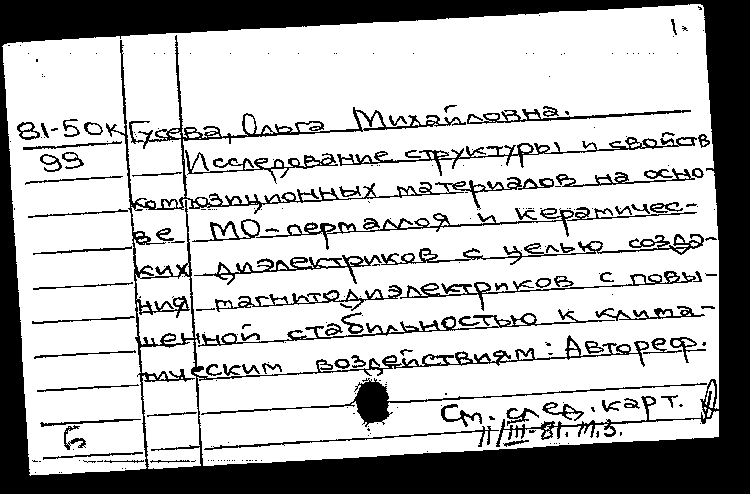 1.
81-50к Гусева, Ольга Михайловна.
99 Исследование структуры и свойств
композиционных материалов на осно-
ве МО-пермаллоя и керамичес-
ких диэлектриков с целью созда-
ния магнитодиэлектриков с повы-
шенной стабильностью к клима-
тическим воздействиям: Автореф.
См. след. карт.
Б 11/III-81. М.З.